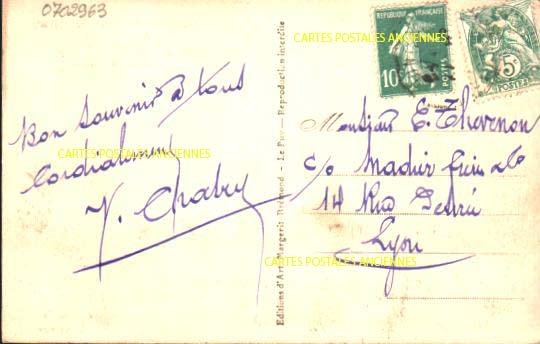 0702963
CARTES POSTALES ANCIENNES
REPUBLIQUE FRANÇAISE
10
POSTES
5c
POSTES
Bon souvenir à tous
Cordialement
CARTES POSTALES ANCIENNES
V. Chabry
Editions d'Art Margerit Brémond - Le Puy - Reproduction interdite
Monsieur E. Thevenon
c/o Madier frères & Co
14 Rue
Lyon
CARTES POSTALES ANCIENNES